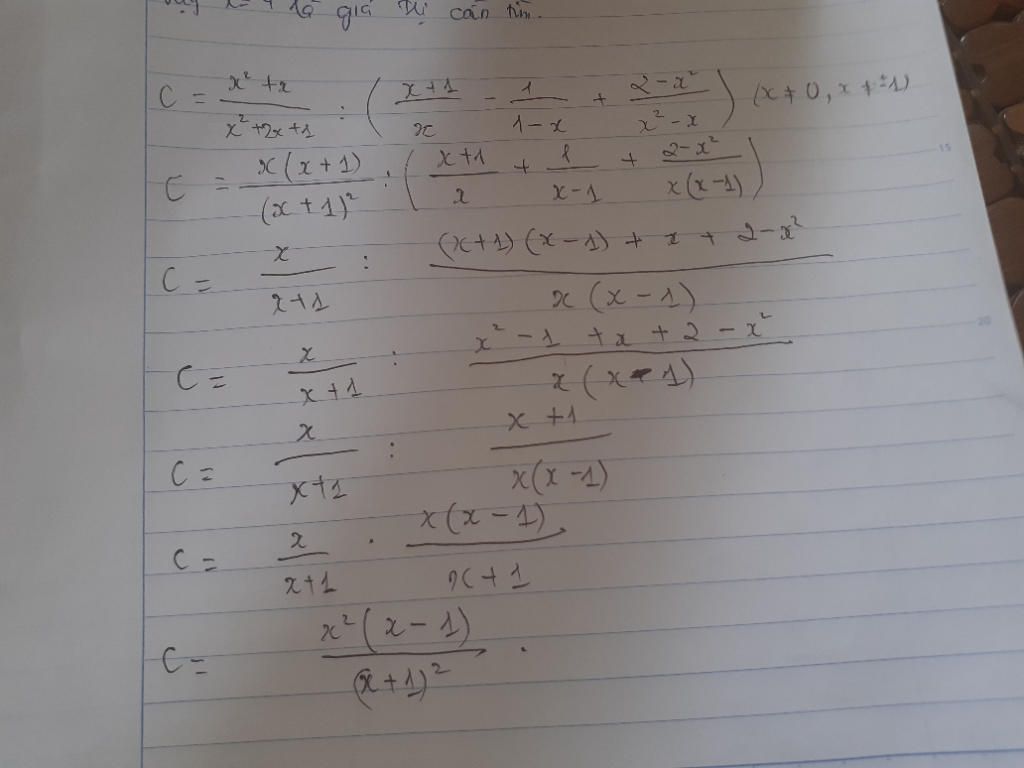 x = 4 là giá trị cần tìm.
C = \frac{x² + x}{x² + 2x + 1} : ( \frac{x + 1}{x} - \frac{1}{1 - x} + \frac{2 - x²}{x² - x} ) (x ≠ 0, x ≠ ±1)
C = \frac{x(x + 1)}{(x + 1)²} : ( \frac{x + 1}{x} + \frac{1}{x - 1} + \frac{2 - x²}{x(x - 1)} )
C = \frac{x}{x + 1} : \frac{(x + 1)(x - 1) + x + 2 - x²}{x(x - 1)}
C = \frac{x}{x + 1} : \frac{x² - 1 + x + 2 - x²}{x(x - 1)}
C = \frac{x}{x + 1} : \frac{x + 1}{x(x - 1)}
C = \frac{x}{x + 1} . \frac{x(x - 1)}{x + 1}
C = \frac{x²(x - 1)}{(x + 1)²} .
15
20